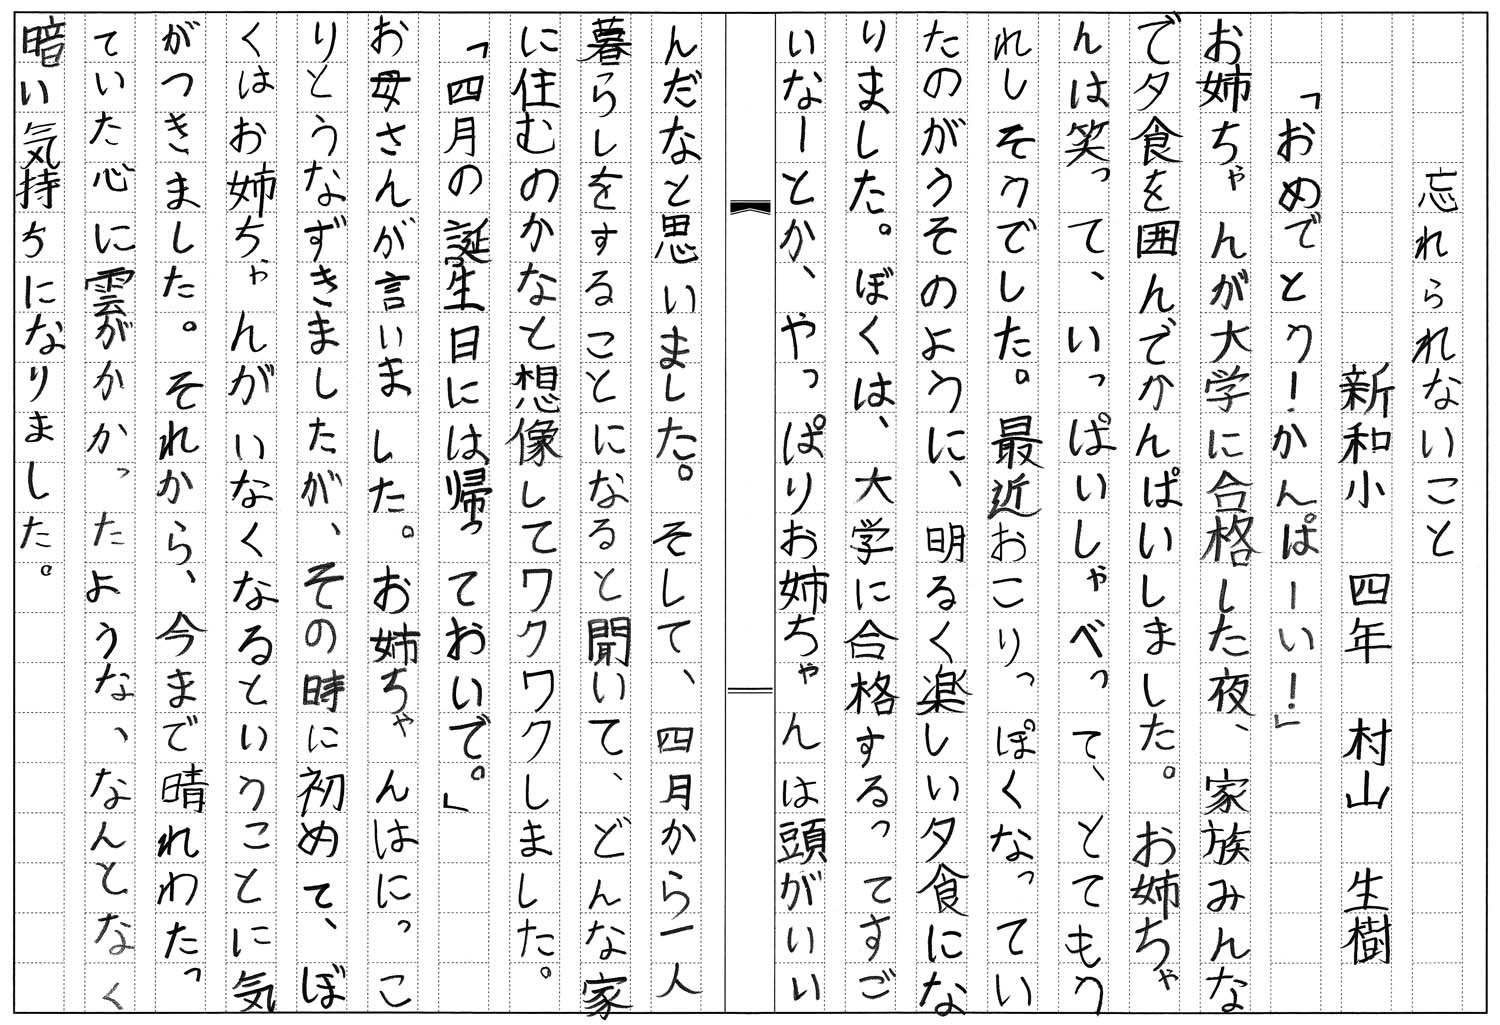 忘れられないこと
新和小　四年　村山　生樹
「おめでとう！かんぱーい！」
お姉ちゃんが大学に合格した夜、家族みんな
で夕食を囲んでかんぱいしました。お姉ちゃ
んは笑って、いっぱいしゃべって、とてもう
れしそうでした。最近おこりっぽくなってい
たのがうそのように、明るく楽しい夕食にな
りました。ぼくは、大学に合格するってすご
いなーとか、やっぱりお姉ちゃんは頭がいい
んだなと思いました。そして、四月から一人
暮らしをすることになると聞いて、どんな家
に住むのかなと想像してワクワクしました。
「四月の誕生日には帰っておいで。」
お母さんが言いました。お姉ちゃんはにっこ
りとうなずきましたが、その時に初めて、ぼ
くはお姉ちゃんがいなくなるということに気
がつきました。それから、今まで晴れわたっ
ていた心に雲がかかったような、なんとなく
暗い気持ちになりました。